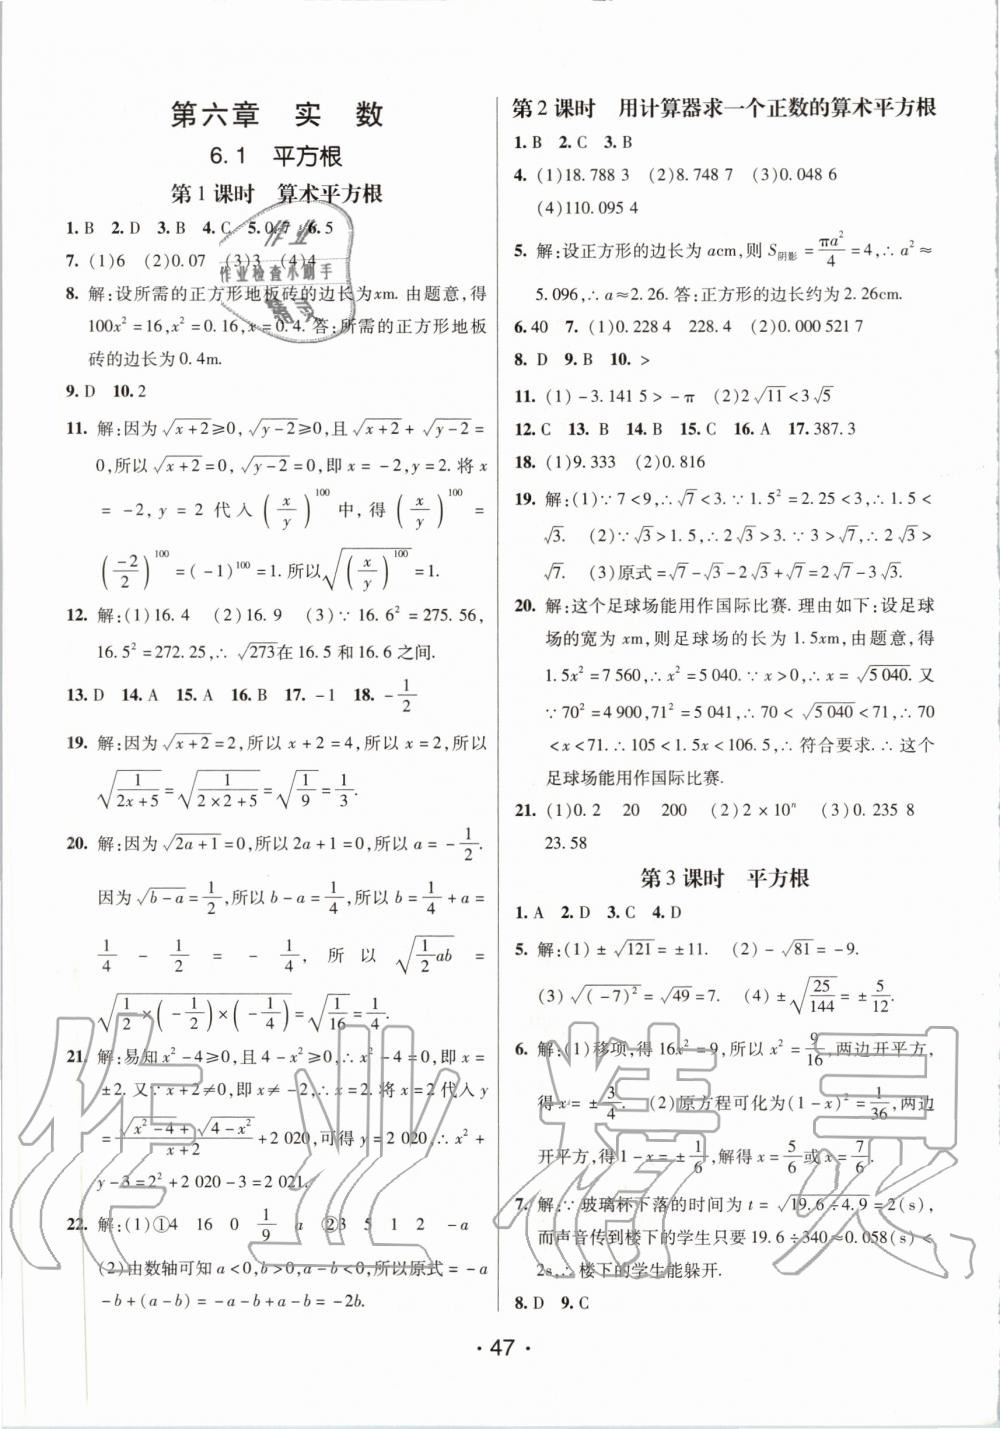 第六章　实　数
6.1　平方根
第1课时　算术平方根
1. B　2. D　3. B　4. C　5. 0.7　6. 5
7. (1)6　(2)0.07　(3)3　(4)4
8. 解:设所需的正方形地板砖的边长为xm. 由题意,得
100x²=16,x²=0.16,x=0.4. 答:所需的正方形地板
砖的边长为0.4m.
9. D　10. 2
11. 解:因为√(x+2)≥0,√(y-2)≥0,且√(x+2)+√(y-2)=
0,所以√(x+2)=0,√(y-2)=0,即x=-2,y=2. 将x
=-2,y=2代入(x/y)^100中,得(x/y)^100=
(-2/2)^100=(-1)^100=1. 所以√((x/y)^100)=1.
12. 解:(1)16.4　(2)16.9　(3)∵16.6²=275.56,
16.5²=272.25,∴√273在16.5和16.6之间.
13. D　14. A　15. A　16. B　17. -1　18. -1/2
19. 解:因为√(x+2)=2,所以x+2=4,所以x=2,所以
√(1/(2x+5))=√(1/(2×2+5))=√(1/9)=1/3.
20. 解:因为√(2a+1)=0,所以2a+1=0,所以a=-1/2.
因为√(b-a)=1/2,所以b-a=1/4,所以b=1/4+a=
1/4-1/2=-1/4,所以√(1/2ab)=
√(1/2×(-1/2)×(-1/4))=√(1/16)=1/4.
21. 解:易知x²-4≥0,且4-x²≥0,∴x²-4=0,即x=
±2. 又∵x+2≠0,即x≠-2,∴x=2. 将x=2代入y
=(√(x²-4)+√(4-x²))/(x+2)+2 020,可得y=2 020,∴x²+
y-3=2²+2 020-3=2 021.
22. 解:(1)①4　16　0　1/9　a　②3　5　1　2　-a
(2)由数轴可知a<0,b>0,a-b<0,所以原式=-a
-b+(a-b)=-a-b+a-b=-2b.
第2课时　用计算器求一个正数的算术平方根
1. B　2. C　3. B
4. (1)18.788 3　(2)8.748 7　(3)0.048 6
(4)110.095 4
5. 解:设正方形的边长为acm,则S阴影=πa²/4=4,∴a²≈
5.096,∴a≈2.26. 答:正方形的边长约为2.26cm.
6. 40　7. (1)0.228 4　228.4　(2)0.000 521 7
8. D　9. B　10. >
11. (1)-3.141 5>-π　(2)2√11<3√5
12. C　13. B　14. B　15. C　16. A　17. 387.3
18. (1)9.333　(2)0.816
19. 解:(1)∵7<9,∴√7<3. ∵1.5²=2.25<3,∴1.5<
√3.　(2)∵√3>1.5,∴2√3>3. ∵3>√7,∴2√3>
√7.　(3)原式=√7-√3-2√3+√7=2√7-3√3.
20. 解:这个足球场能用作国际比赛. 理由如下:设足球
场的宽为xm,则足球场的长为1.5xm,由题意,得
1.5x²=7 560,∴x²=5 040. ∵x>0,∴x=√5 040. 又
∵70²=4 900,71²=5 041,∴70<√5 040<71,∴70
<x<71. ∴105<1.5x<106.5,∴符合要求. ∴这个
足球场能用作国际比赛.
21. (1)0.2　20　200　(2)2×10ⁿ　(3)0.235 8
23.58
第3课时　平方根
1. A　2. D　3. C　4. D
5. 解:(1)±√121=±11.　(2)-√81=-9.
(3)√((-7)²)=√49=7.　(4)±√(25/144)=±5/12.
6. 解:(1)移项,得16x²=9,所以x²=9/16,两边开平方,
得x=±3/4.　(2)原方程可化为(1-x)²=1/36,两边
开平方,得1-x=±1/6,解得x=5/6或x=7/6.
7. 解:∵玻璃杯下落的时间为t=√(19.6÷4.9)=2(s),
而声音传到楼下的学生只要19.6÷340≈0.058(s)<
2s,∴楼下的学生能躲开.
8. D　9. C
·47·
作业
作业检查小助手
精灵
作业精灵